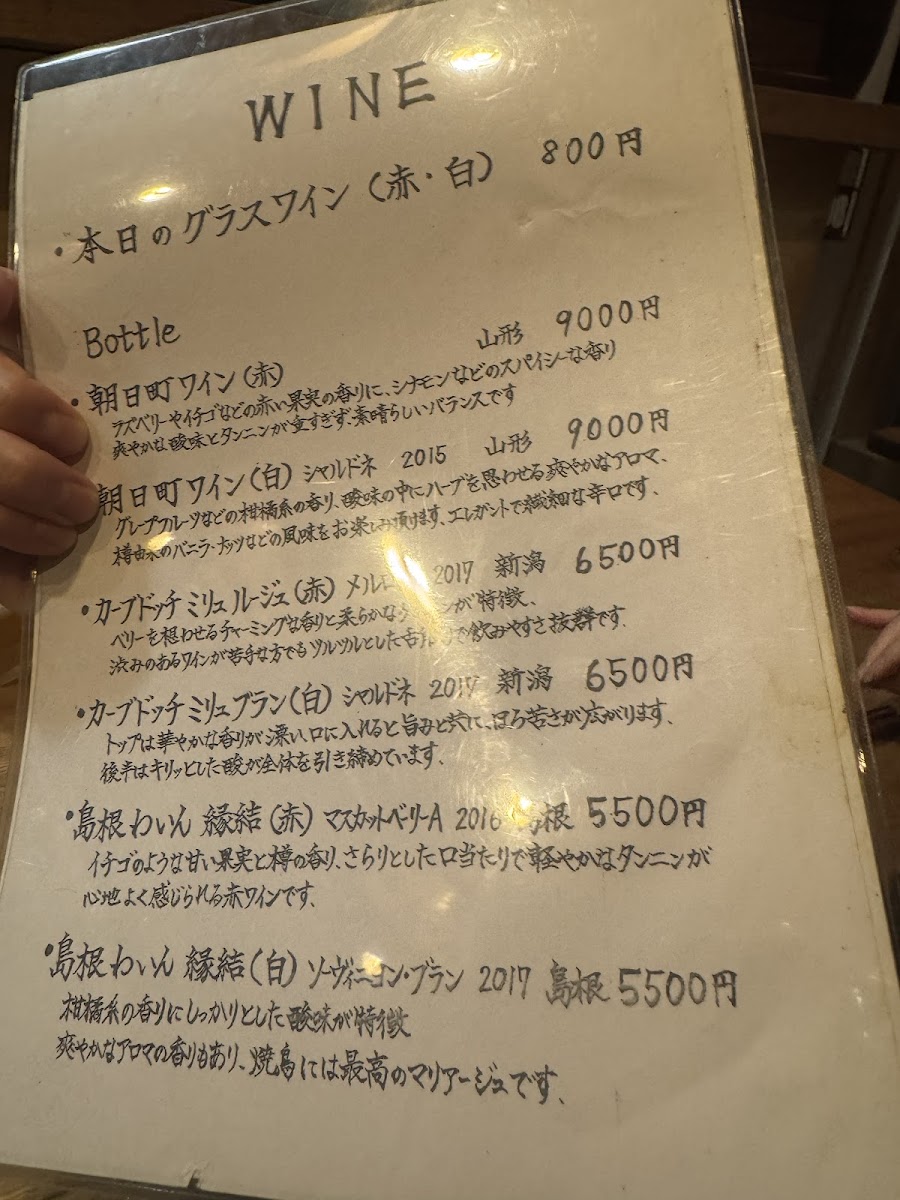 WINE
・本日のグラスワイン(赤・白) 800円
Bottle
・朝日町ワイン(赤) 山形 9000円
ラズベリーやイチゴなどの赤い果実の香りに、シナモンなどのスパイシーな香り
爽やかな酸味とタンニンが重すぎず、素晴らしいバランスです
朝日町ワイン(白) シャルドネ 2015 山形 9000円
グレープフルーツなどの柑橘系の香り、酸味の中にハーブを思わせる爽やかなアロマ、
樽由来のバニラ・ナッツなどの風味をお楽しみ頂けます、エレガントで繊細な辛口です、
・カーブドッチ ミリュ ルージュ(赤) メルロー 2017 新潟 6500円
ベリーを想わせるチャーミングな香りと柔らかな が特徴、
渋みのあるワインが苦手な方でもツルツルとした で飲みやすさ抜群です、
・カーブドッチ ミリュ ブラン(白) シャルドネ 2017 新潟 6500円
トップは華やかな香りが漂い、口に入れると旨みと共に、ほろ苦さが広がります、
後半はキリッとした酸が全体を引き締めています、
・島根わいん 縁結(赤) マスカットベリーA 2016 島根 5500円
イチゴのような甘い果実と樽の香り、さらりとした口当たりで軽やかなタンニンが
心地よく感じられる赤ワインです、
・島根わいん 縁結(白) ソーヴィニヨン・ブラン 2017 島根 5500円
柑橘系の香りにしっかりとした酸味が特徴
爽やかなアロマの香りもあり、焼鳥には最高のマリアージュです、